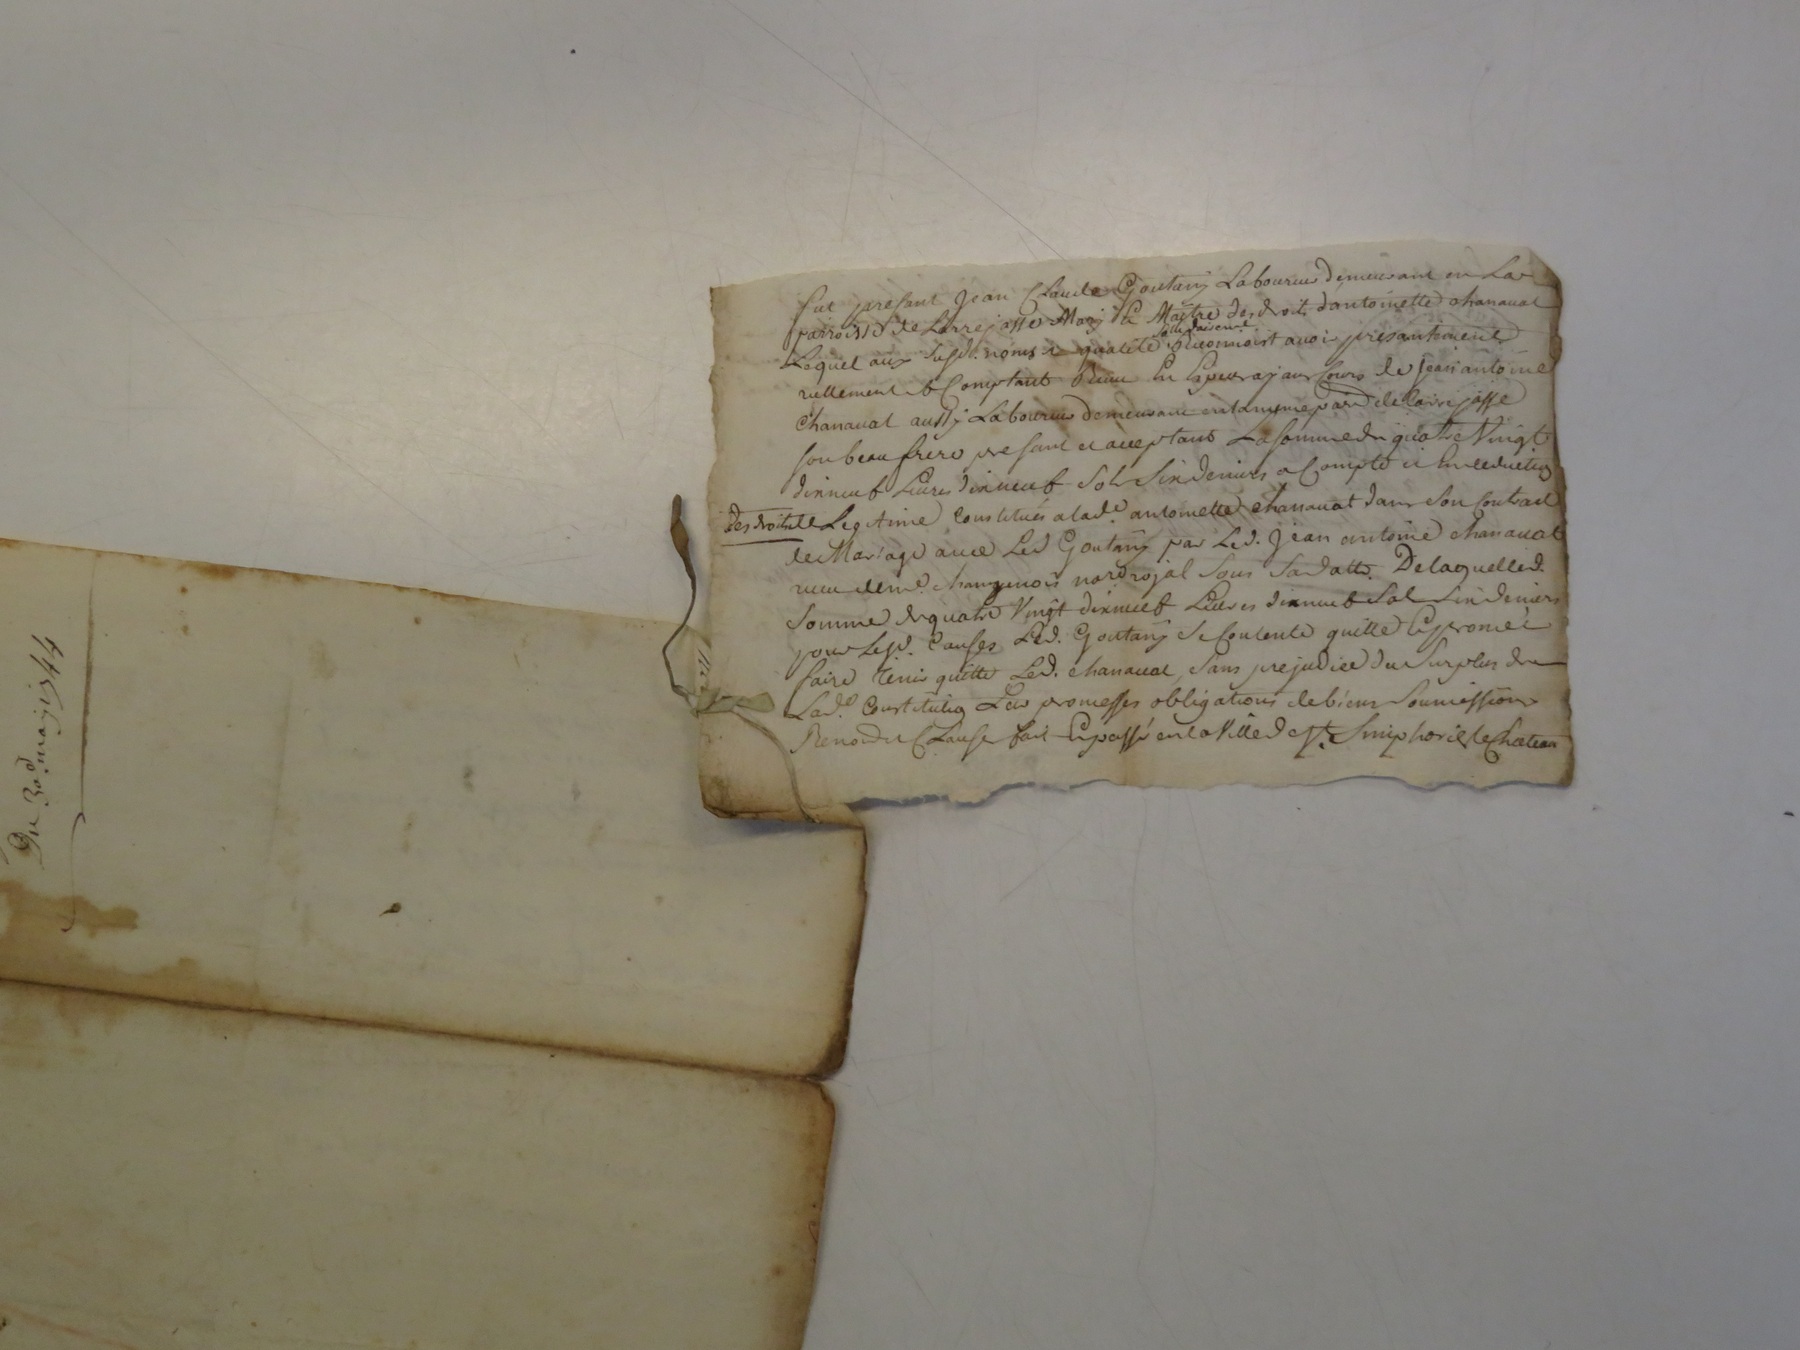 fut present Jean Claude Goutany Laboureur demeurant en La
parroisse de Larrejasse Mary & Maitre des droits dantoinette chanavat
Lequel aux susd. noms et qualité reconnoist avoir presantement
reellement & Comptant Receu En Especes ayant Cours de Jean antoine
chanavat aussy Laboureur demeurant en la mesme parr. de larrejasse
son beau frere present et acceptant La somme de quatre Vingt
dixneuf Livres dixneuf Sols Six deniers a Compte et En deduction
des droits de Legitime Constitués a lad.e antoinette chanavat dans Son Contract
de Mariage avec Led Goutany par Led. Jean antoine chanavat
receu de me. not. royal Sous Sa datte. De laquelle d.
Somme de quatre Vingt dixneuf Livres dixneuf Sols Six deniers
pour Lesd. Causes Led. Goutany se Contente quitte & promet
faire tenir quitte Led. chanavat, sans prejudice du Surplus de
Lad.e Constitution Par promesses obligations de biens Soumissions
Renon. & Clause fait & passé en la Ville de St. Simphorien le Chateau
Du 30e. may 1744